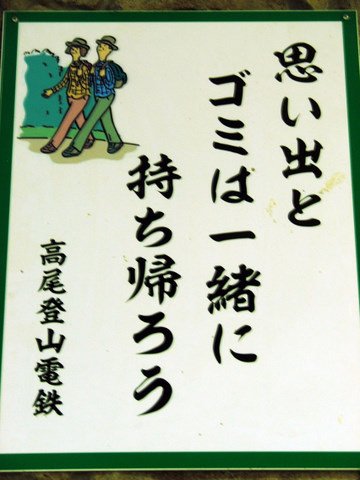 思い出と
ゴミは一緒に
持ち帰ろう
高尾登山電鉄